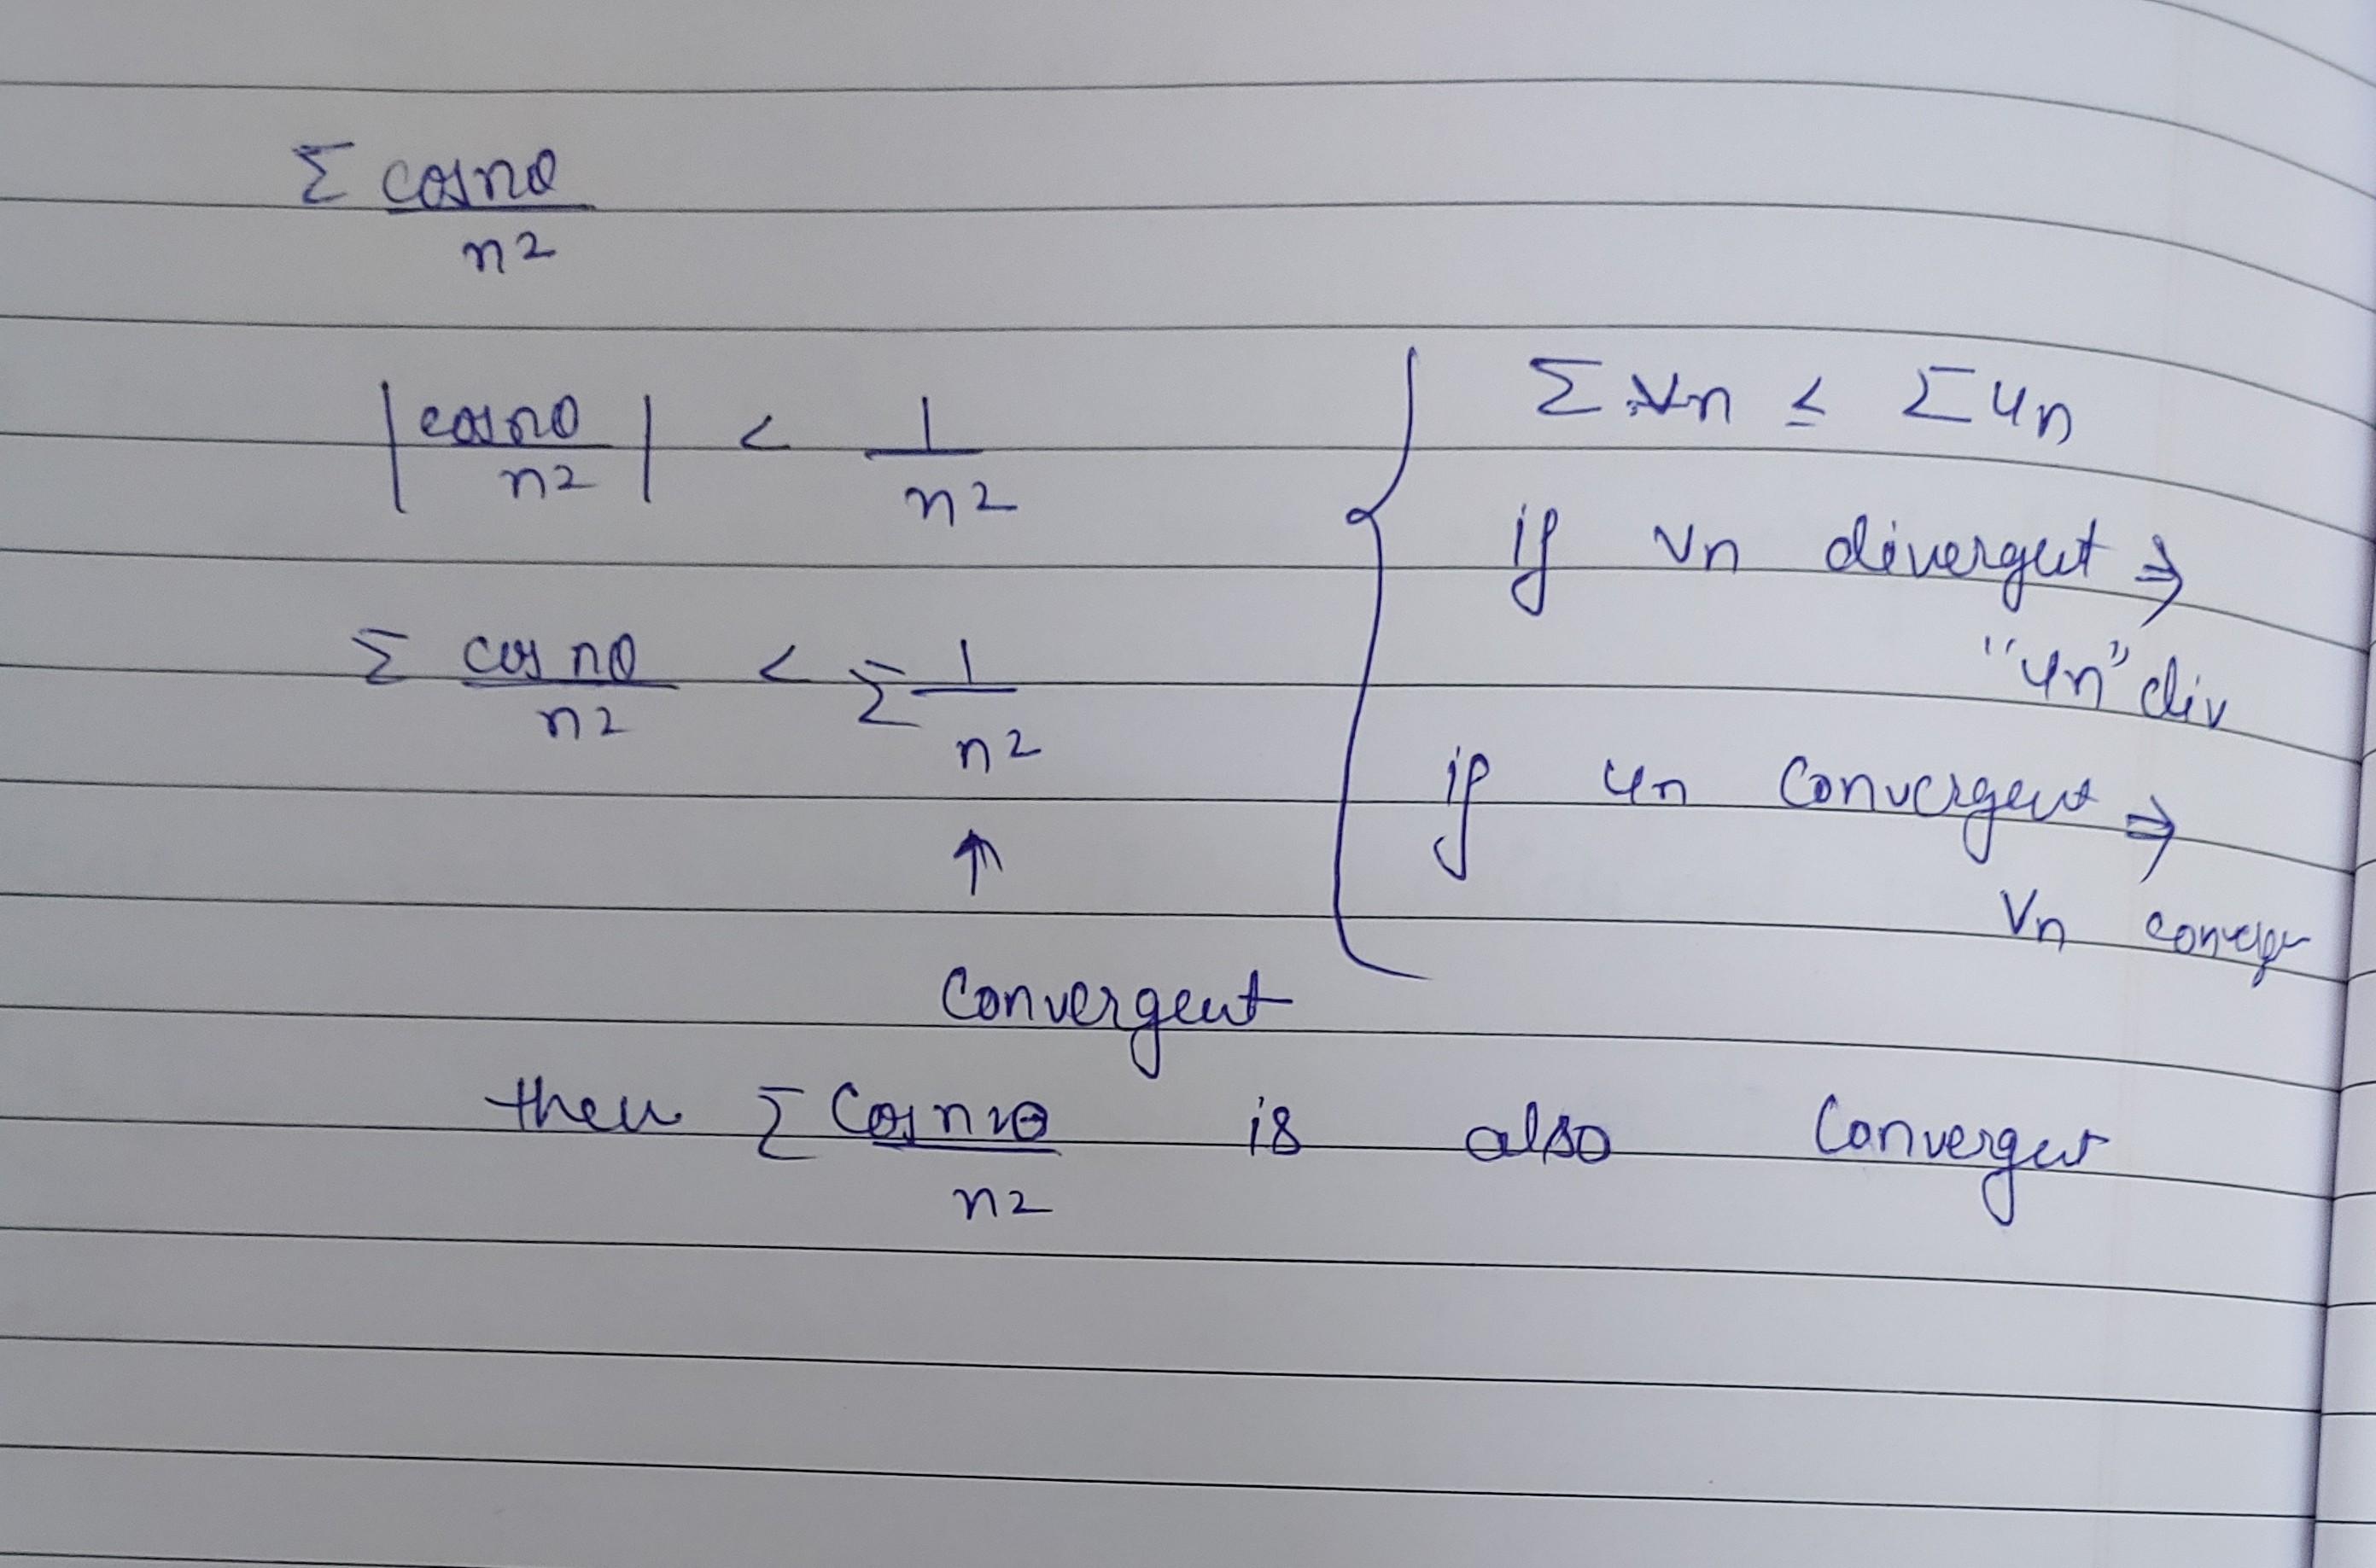 Σ cos nθ / n2
| cos nθ / n2 | < 1 / n2
Σ cos nθ / n2 < Σ 1 / n2
↑
Convergent
Σ Vn ≤ Σ Un
if Vn divergent ⇒
"Un" div
if Un Convergent ⇒
Vn conver
then Σ Cos nθ / n2 is also Convergent